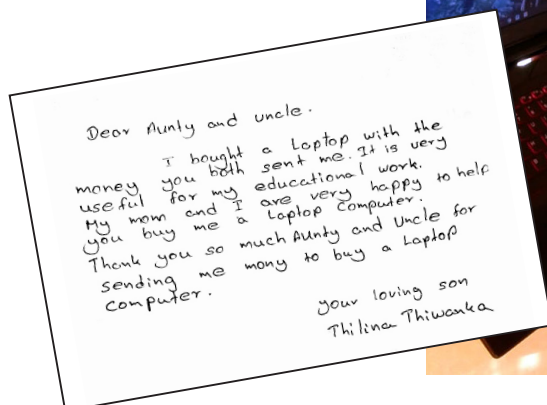 Dear Aunty and uncle.
I bought a Laptop with the
money you both sent me. It is very
useful for my educational work.
My mom and I are very happy to help
you buy me a Laptop Computer.
Thank you so much Aunty and Uncle for
sending me mony to buy a Laptop
computer.
your loving son
Thilina Thiwanka